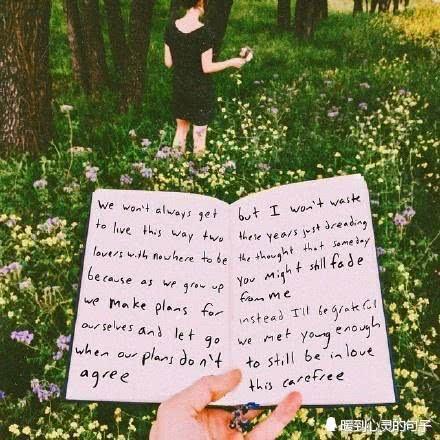 we won't always get
to live this way two
lovers with nowhere to be
because as we grow up
we make plans for
ourselves and let go
when our plans don't
agree
but I won't waste
these years just dreading
the thought that someday
you might still fade
from me
instead I'll be grateful
we met young enough
to still be in love
this carefree
暖到心灵的句子